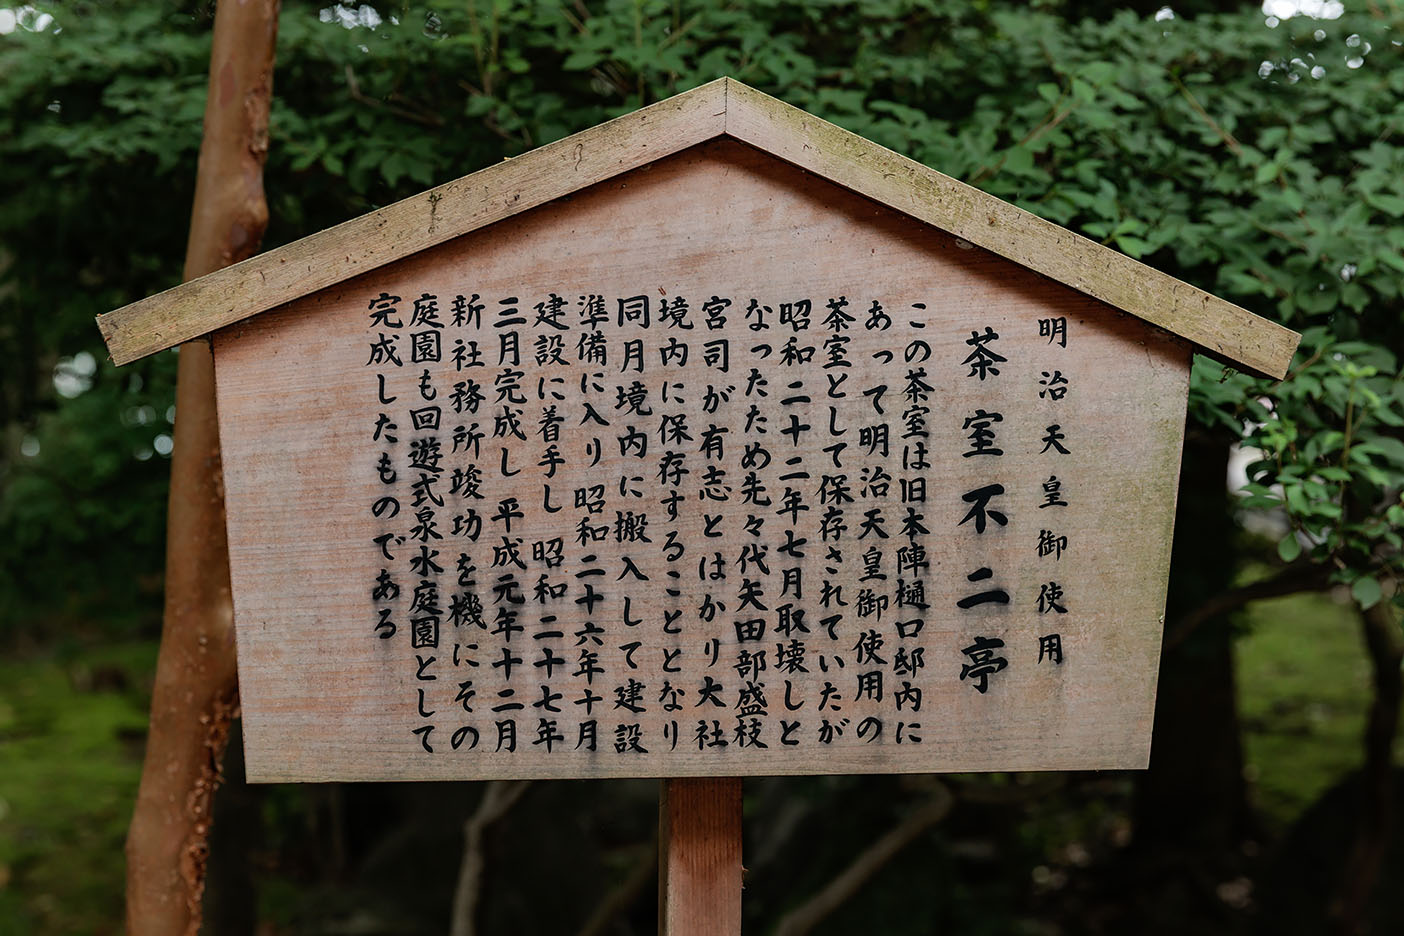 明治天皇御使用
茶室不二亭
この茶室は旧本陣樋口邸内に
あって明治天皇御使用の
茶室として保存されていたが
昭和二十二年七月取壊しと
なったため先々代矢田部盛枝
宮司が有志とはかり大社
境内に保存することとなり
同月境内に搬入して建設
準備に入り昭和二十六年十月
建設に着手し昭和二十七年
三月完成し平成元年十二月
新社務所竣功を機にその
庭園も回遊式泉水庭園として
完成したものである